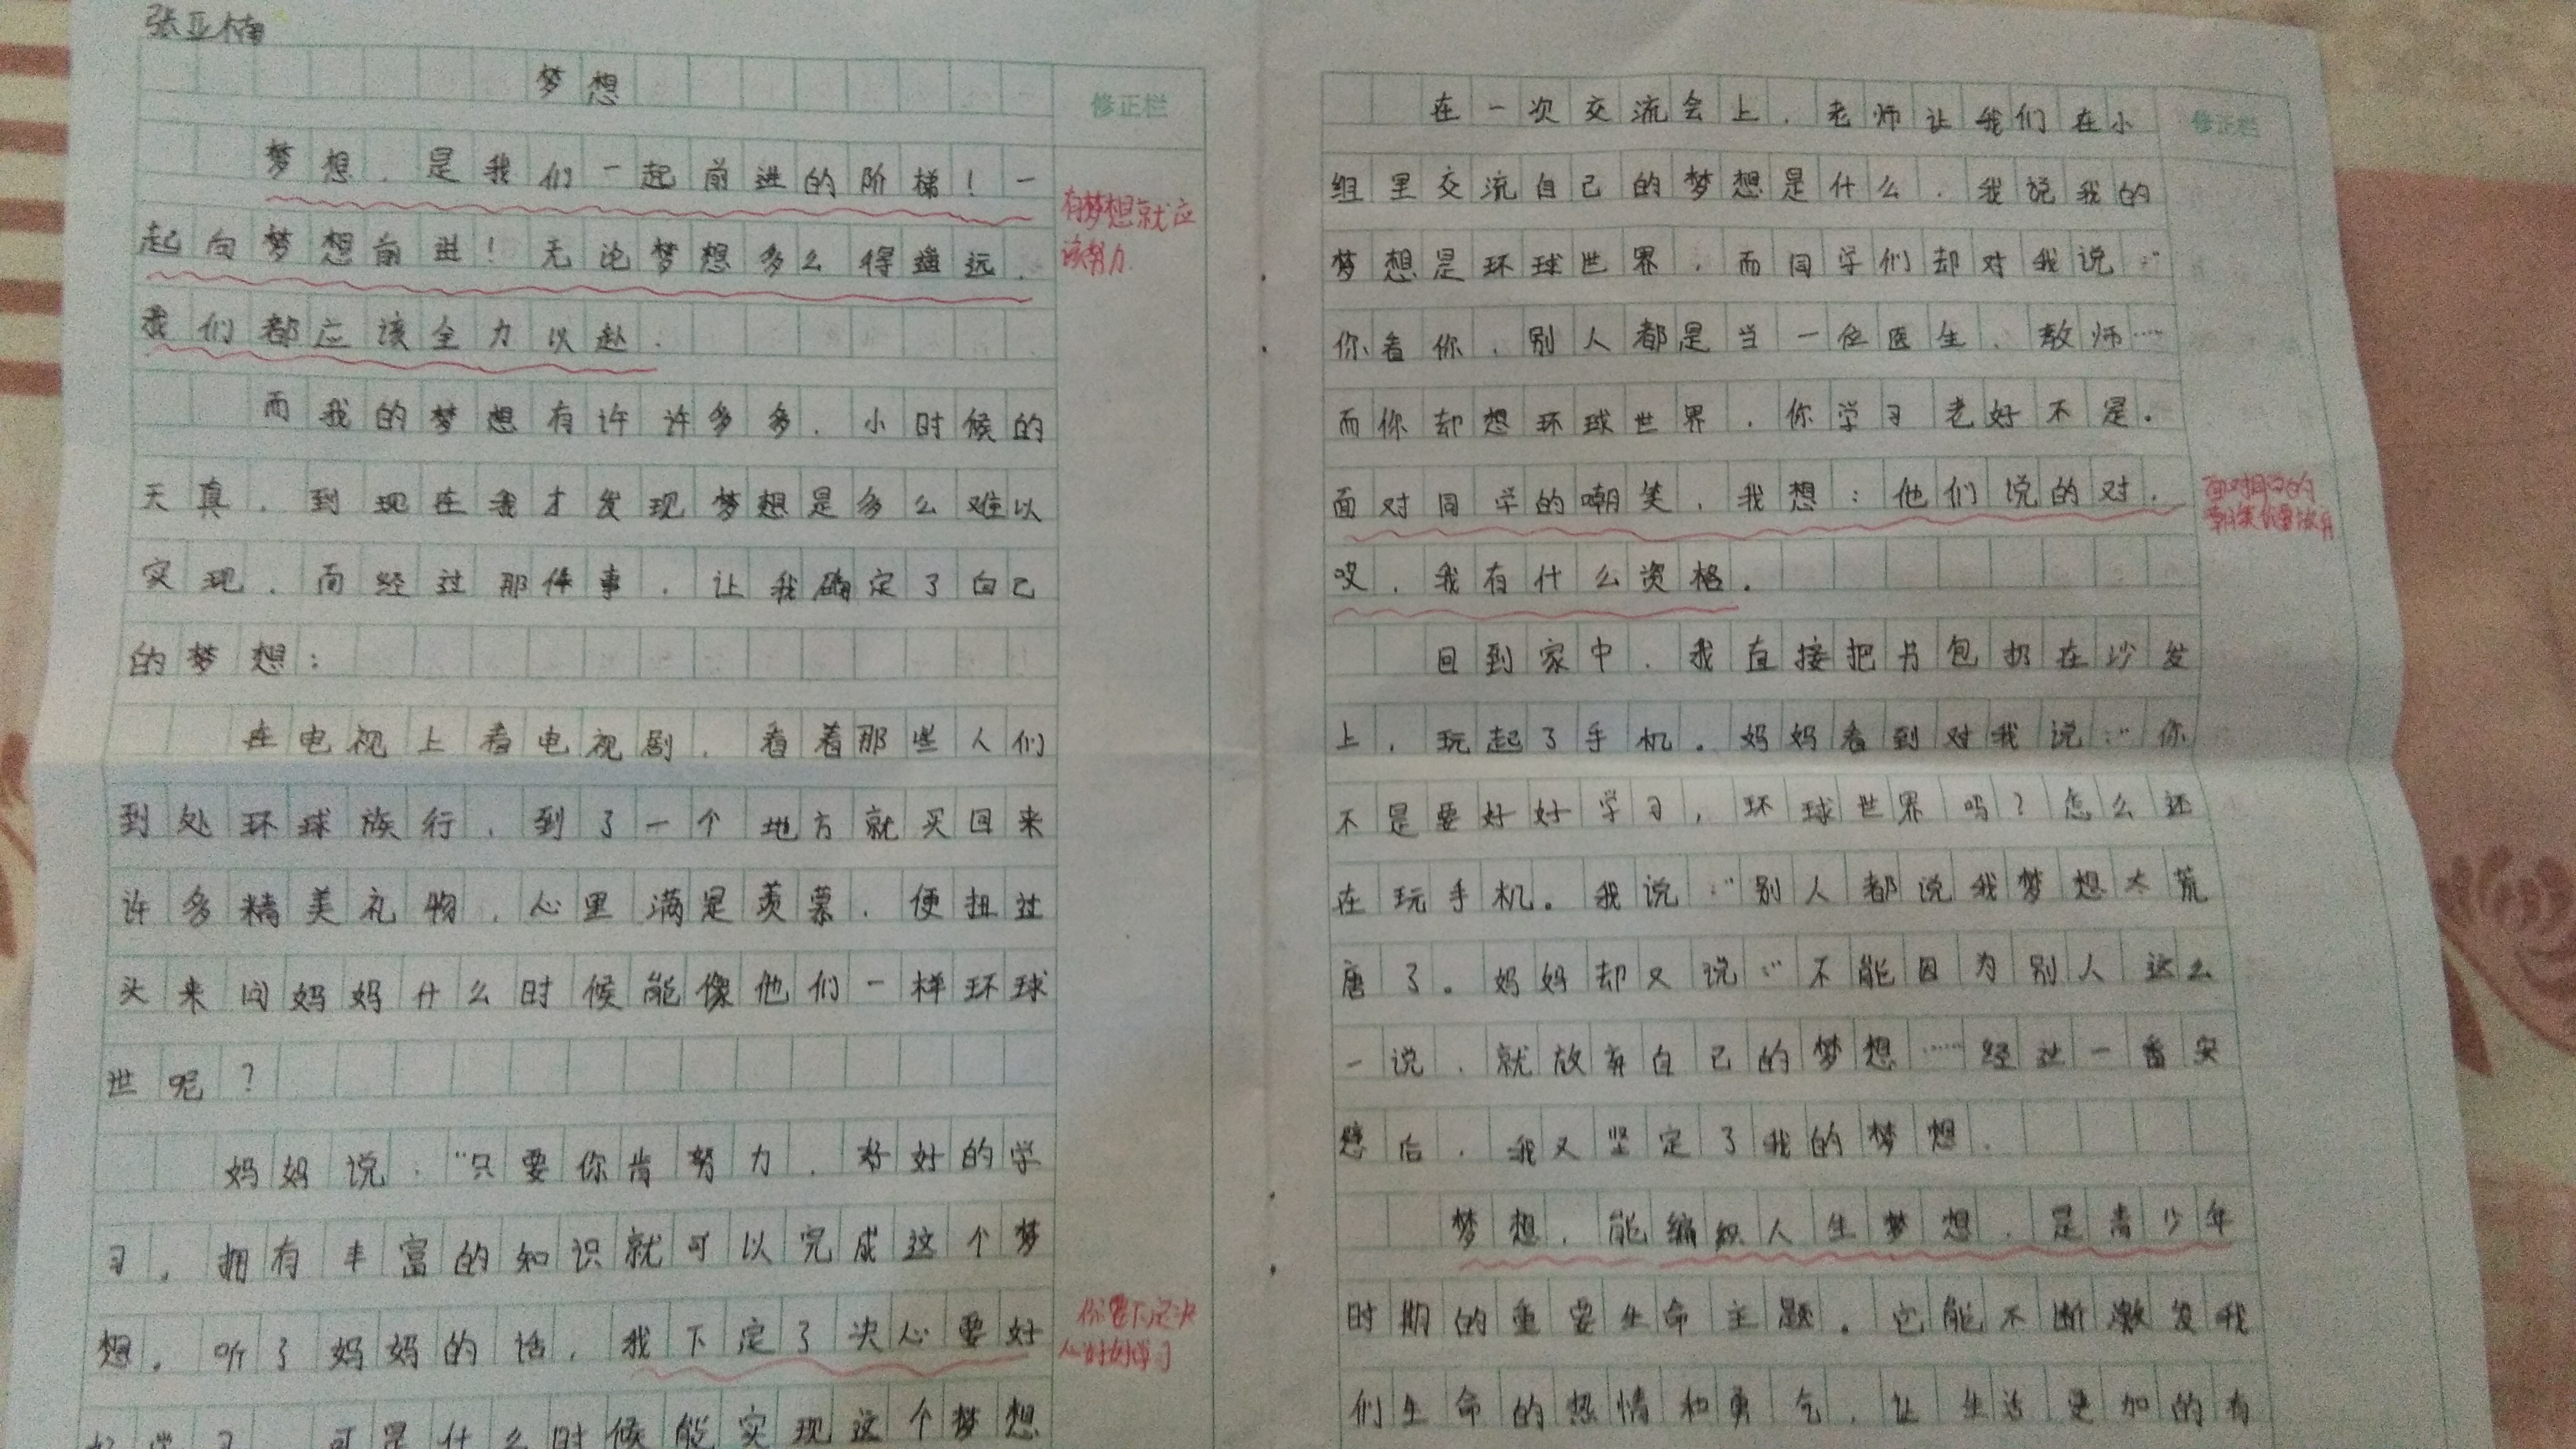 张亚楠
梦想
修正栏
梦想，是我们一起前进的阶梯！一
起向梦想前进！无论梦想多么得遥远，
我们都应该全力以赴．
有梦想就应
该努力
而我的梦想有许许多多．小时候的
天真．到现在我才发现梦想是多么难以
实现．而经过那件事．让我确定了自己
的梦想：
在电视上看电视剧．看着那些人们
到处环球族行．到了一个地方就买回来
许多精美礼物．心里满是羡慕．便扭过
头来问妈妈什么时候能像他们一样环球
世呢？
妈妈说：“只要你肯努力．好好的学
习，拥有丰富的知识就可以完成这个梦
想。听了妈妈的话，我下定了决心要好
你要下定决
心好好学习
好学习．可是什么时候能实现这个梦想
在一次交流会上．老师让我们在小
修正栏
组里交流自己的梦想是什么．我说我的
梦想是环球世界．而同学们却对我说：“
你看你．别人都是当一位医生、教师……
而你却想环球世界．你学习老好不是．
面对同学的嘲笑．我想：他们说的对．
哎．我有什么资格．
面对同学的
回到家中．我直接把书包扔在沙发
上．玩起了手机。妈妈看到对我说：“你
不是要好好学习，环球世界吗？怎么还
在玩手机。我说：“别人都说我梦想太荒
唐了。妈妈却又说：“不能因为别人这么
一说．就放弃自己的梦想……经过一番安
慰后．我又坚定了我的梦想．
梦想．能编织人生梦想．是青少年
时期的重要生命主题。它能不断激发我
们生命的热情和勇气．让生活更加的有